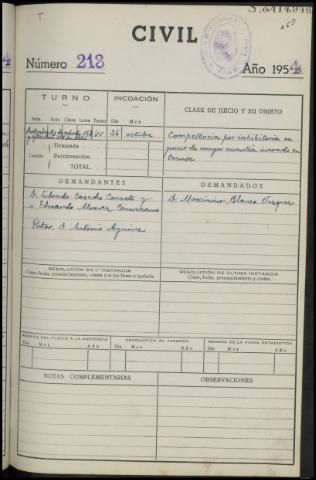 T
169
CIVIL
Número 213
Año 1954
TURNO
INCOACIÓN
CLASE DE JUICIO Y SU OBJETO
Núm. Auto Clase Letra Turno
Día Mes
26 octubre
Competencia por inhibitoria en
juicio de mayor cuantía incoado en
Orense
Demanda
Cuantía Reconvención
TOTAL
DEMANDANTES
DEMANDADOS
D. Librado Casado
y
D. Eduardo Alvarez
D. Maximino Blanco Vazquez
Procr. D. Antonio Aguirre
RESOLUCIÓN EN 1.ª INSTANCIA
Clase, fecha, pronunciamiento, costas y si fué firme o apelada.
RESOLUCIÓN DE ÚLTIMA INSTANCIA
Clase, fecha, pronunciamiento y costas
REMESA DEL PLEITO A LA AUDIENCIA
DEVOLUCIÓN AL JUZGADO
REMESA DE LA FICHA ESTADÍSTICA
Día Mes Año
Día Mes Año
Día Mes Año
NOTAS COMPLEMENTARIAS
OBSERVACIONES